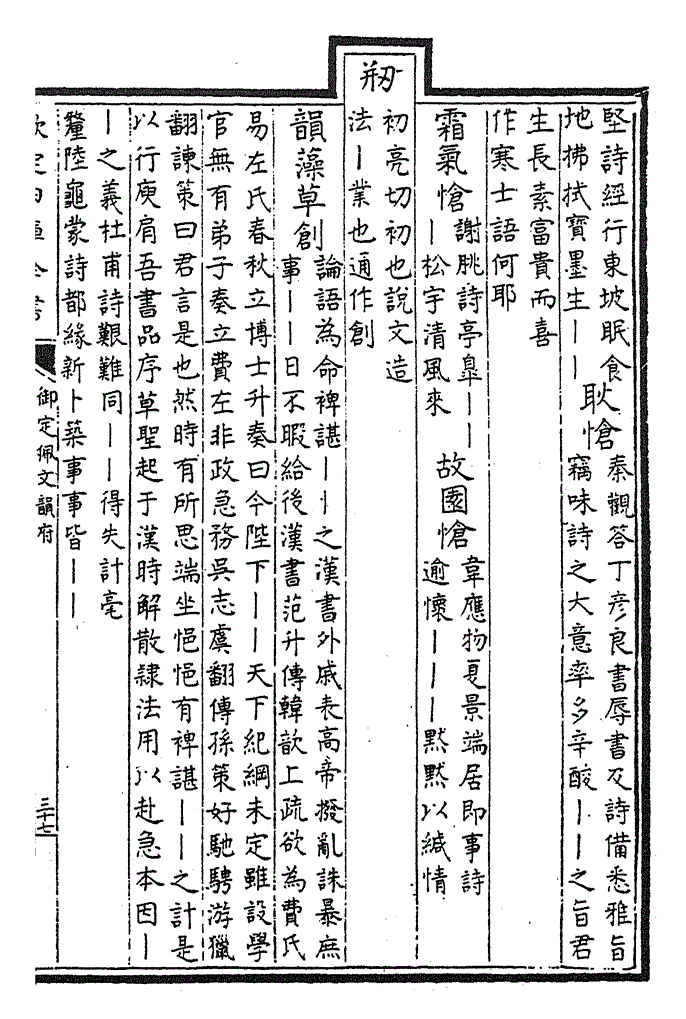 堅詩經行東坡眠食
地拂拭寶墨生丨丨
耿愴
秦觀答丁彥良書辱書及詩備悉雅旨
竊味詩之大意率多辛酸丨丨之旨君
生長素富貴而喜
作寒士語何耶
霜氣愴
謝朓詩亭皋丨丨
丨松宇清風來
故園愴
韋應物夏景端居即事詩
逾懷丨丨丨黙黙以緘情
剏
初亮切初也說文造
法丨業也通作創
韻藻草創
論語為命裨諶丨丨之漢書外戚表高帝撥亂誅暴庶
事丨丨日不暇給後漢書范升傳韓歆上疏欲為費氏
易左氏春秋立博士升奏曰今陛下丨丨天下紀綱未定雖設學
官無有弟子奏立費左非政急務吳志虞翻傳孫策好馳騁游獵
翻諫策曰君言是也然時有所思端坐悒悒有裨諶丨丨之計是
以行庾肩吾書品序草聖起于漢時解散隸法用以赴急本因丨
丨之義杜甫詩艱難同丨丨得失計毫
釐陸龜蒙詩都緣新卜築事事皆丨丨
欽定四庫全書
御定佩文韻府
三十七